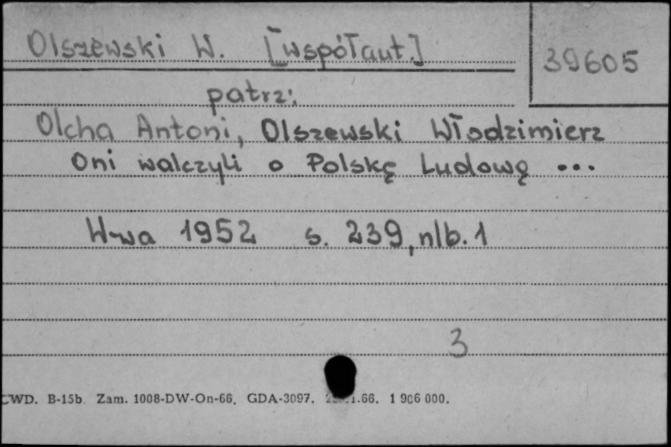 Olszewski W. [współaut.]
39605
patrz:
Olcha Antoni, Olszewski Włodzimierz
Oni walczyli o Polskę Ludową ...
W-wa 1952 s. 239, nlb. 1
3
CWD. B-15b. Zam. 1008-DW-On-66. GDA-3097. 1 906 000.